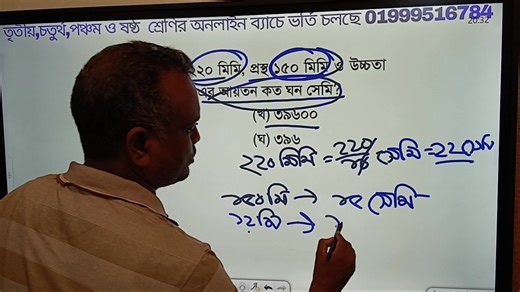 তৃতীয়,চতুর্থ,পঞ্চম ও ষষ্ঠ শ্রেণির অনলাইন ব্যাচে ভর্তি চলছে 01999516784
20:32
২২০ মিমি, প্রস্থ ১৫০ মিমি ও উচ্চতা
এর আয়তন কত ঘন সেমি?
(খ) ৩৯৬০০
(ঘ) ৩৯৬
২২০ মিমি = ২২০/১০ সেমি = ২২ সেমি
১৫০ মি → ১৫ সেমি
১২ মি →